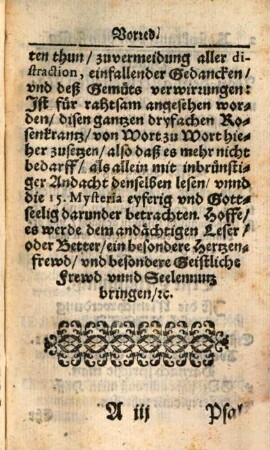 Vorred.
ten thun/ zuvermeidung aller di-
straction, einfallender Gedancken/
vnd deß Gemüts verwirrungen:
Ist für rahtsam angesehen wor-
den/ disen gantzen dryfachen Ro-
senkrantz/ von Wort zu Wort hie-
her zusetzen/ also daß es mehr nicht
bedarff/ als allein mit inbrünsti-
ger Andacht denselben lesen/ vnnd
die 15. Mysteria eyferig vnd Gott-
seelig darunder betrachten. Hoffe/
es werde dem andächtigen Leser/
oder Better/ ein besondere Hertzen-
frewd/ vnd besondere Geistliche
Frewd vnnd Seelennutz
bringen/ ꝛc.
A iij Psal